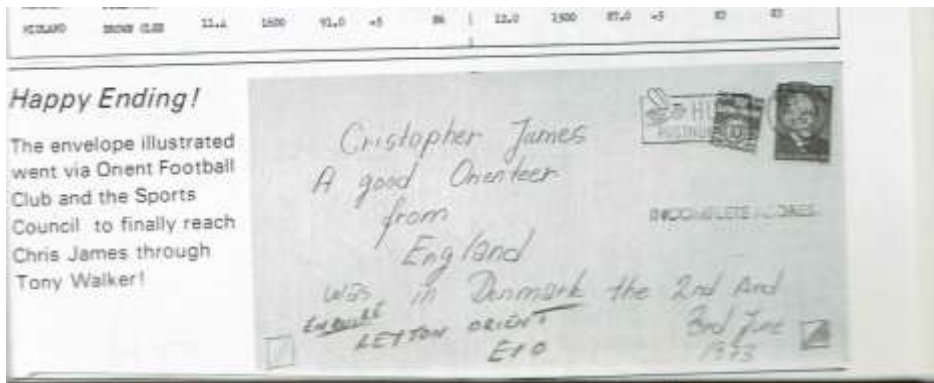 MIDLAND 11.4 1500 91.0 -5 86 12.0 1500 87.0 -5 83 83
Happy Ending!
The envelope illustrated
went via Orient Football
Club and the Sports
Council to finally reach
Chris James through
Tony Walker!
Cristopher James
A good Orienteer
from
England
was in Denmark the 2nd And
3rd June
1973
ENQUIRE
LEYTON ORIENT
E10
HU
POSTNUM
INCOMPLETE ADDRESS